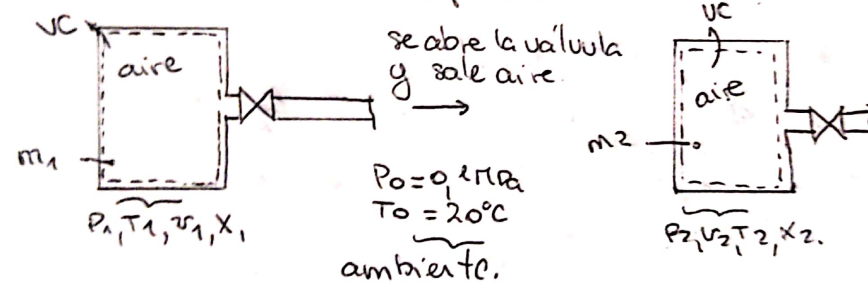 VC
aire
m1
P1, T1, v1, X1
se abre la válvula
y sale aire.
P0 = 0,1 MPa
T0 = 20°C
ambiente.
VC
aire
m2
P2, v2, T2, X2.